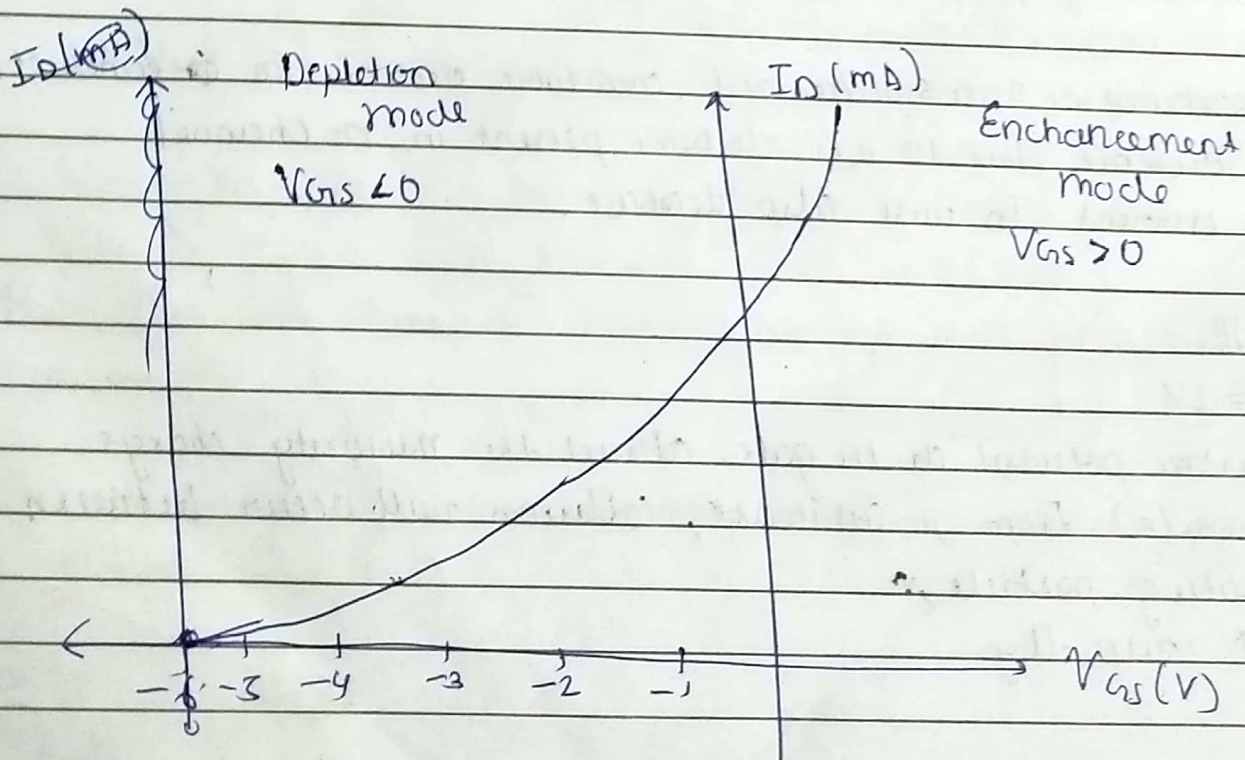 ID (mA)
Depletion
mode
VGS <0
ID (mA)
Enchancement
mode
VGS >0
-5 -4 -3 -2 -1
VGS (V)